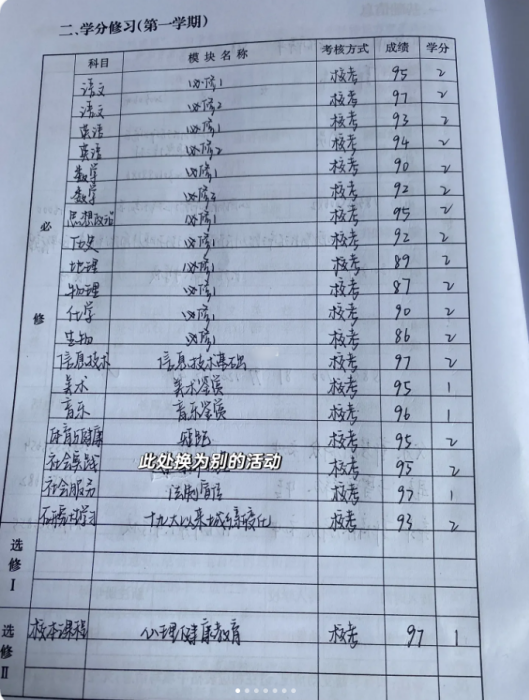 二、学分修习(第一学期)
科目 模块名称 考核方式 成绩 学分
必修
语文 必修1 校考 95 2
语文 必修2 校考 97 2
英语 必修1 校考 93 2
英语 必修2 校考 94 2
数学 必修1 校考 90 2
数学 必修2 校考 92 2
思想政治 必修1 校考 95 2
历史 必修1 校考 92 2
地理 必修1 校考 89 2
物理 必修1 校考 87 2
化学 必修1 校考 90 2
生物 必修1 校考 86 2
信息技术 信息技术基础 校考 97 2
美术 美术鉴赏 校考 95 1
音乐 音乐鉴赏 校考 96 1
体育与健康 校考 95 2
社会实践 此处换为别的活动 校考 95 2
社会服务 法制宣传 校考 97 1
研究性学习 十九大以来 校考 93 2
选修I
选修II
校本课程 心理健康教育 校考 97 1